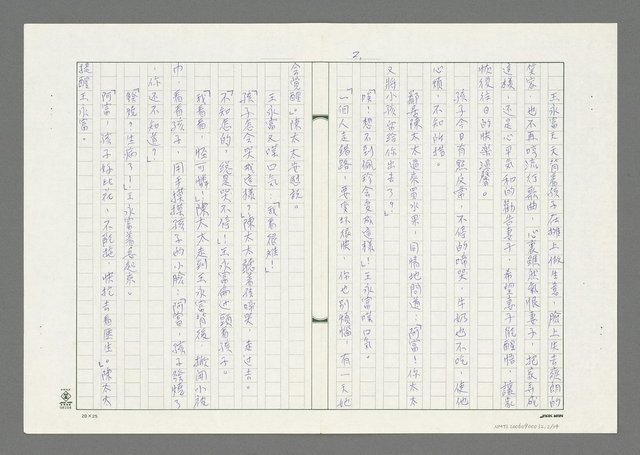 2.
王永富天天背着孩子在摊上做生意,臉上失去爽朗的
笑容,也不再唱流行歌曲,心裏雖然氣恨妻子,把家弄成
這樣,还是心平氣和的勸告妻子,希望妻子能醒悟,讓家
恢復往日的快樂溫馨。
孩子今日有點反常,不停的啼哭,牛奶也不吃,使他
心煩,不知所措。
鄰居陳太太過來買水果,同情地問道:「阿富!你太太
又將小孩留給你出去了?」
「唉!想不到佩珍會变成這樣!」王永富嘆口气。
「一個人走錯路,要变坏很快,你也别煩惱,有一天她
會覺醒。」陳太太安慰說。
王永富又嘆口气:「我看很难!」
「孩子怎会哭成這樣?」陳太太聽着後啼哭,走过去。
「不知怎的,總是哭不停!」王永富偏过頭看孩子。
「我看看,怪可憐!」陳太太走到王永富背後,撤開小被
巾,看看孩子,用手摸摸孩子的小臉:「阿富,孩子發燒了
,你还不知道?」
「發燒?生病了!」王永富着急起來。
「阿富,孩子好比花,不能拖,快抱去看医生。」陳太太
提醒王永富。
20×25
NMTL20060090012.2/14